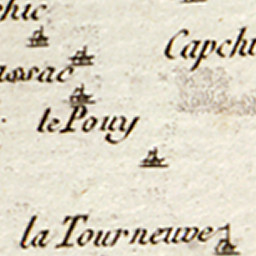 hic
Capch
assac
le Pouy
la Tourneuve